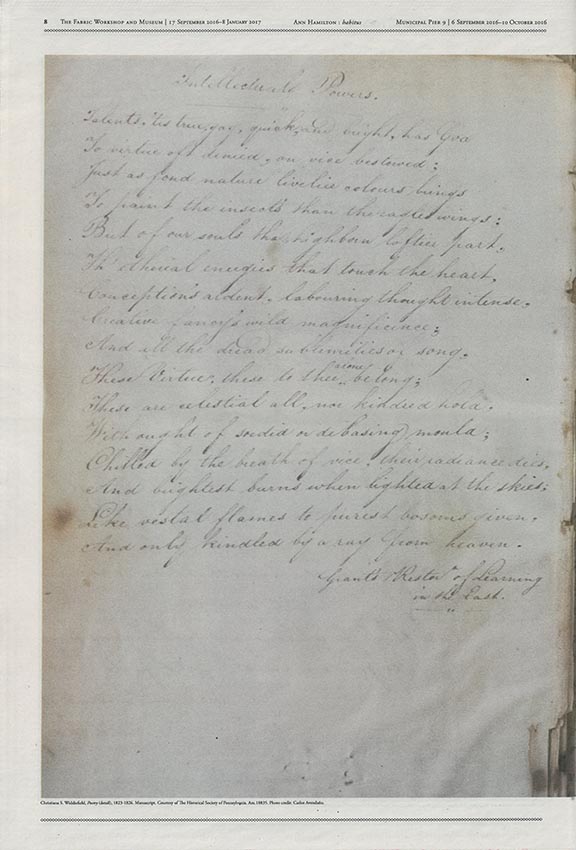 8 The Fabric Workshop and Museum | 17 September 2016–8 January 2017 Ann Hamilton : habitus Municipal Pier 9 | 6 September 2016–10 October 2016
Intellectual Powers.
Talents, 'tis true, gay, quick, and bright, has God
To virtue oft denied, on vice bestowed;
Just as fond nature livelier colours brings
To paint the insect's than the eagle's wings:
But of our souls the highborn loftier part,
Th' etherial energies that touch the heart,
Conceptions ardent, labouring thought intense,
Creative fancy's wild magnificence;
And all the dread sublimities of song,
These Virtue, these to thee alone belong;
These are celestial all, nor kindred hold,
With ought of sordid or debasing mould;
Chilled by the breath of vice, their radiance dies,
And brightest burns when lighted at the skies;
Like vestal flames to purest bosoms given,
And only kindled by a ray from heaven.
Grant's "Restor" of Learning
in the East.
Christiana S. Widdefield, Poetry (detail), 1823-1826. Manuscript. Courtesy of The Historical Society of Pennsylvania. Am .10835. Photo credit: Carlos Avendaño.